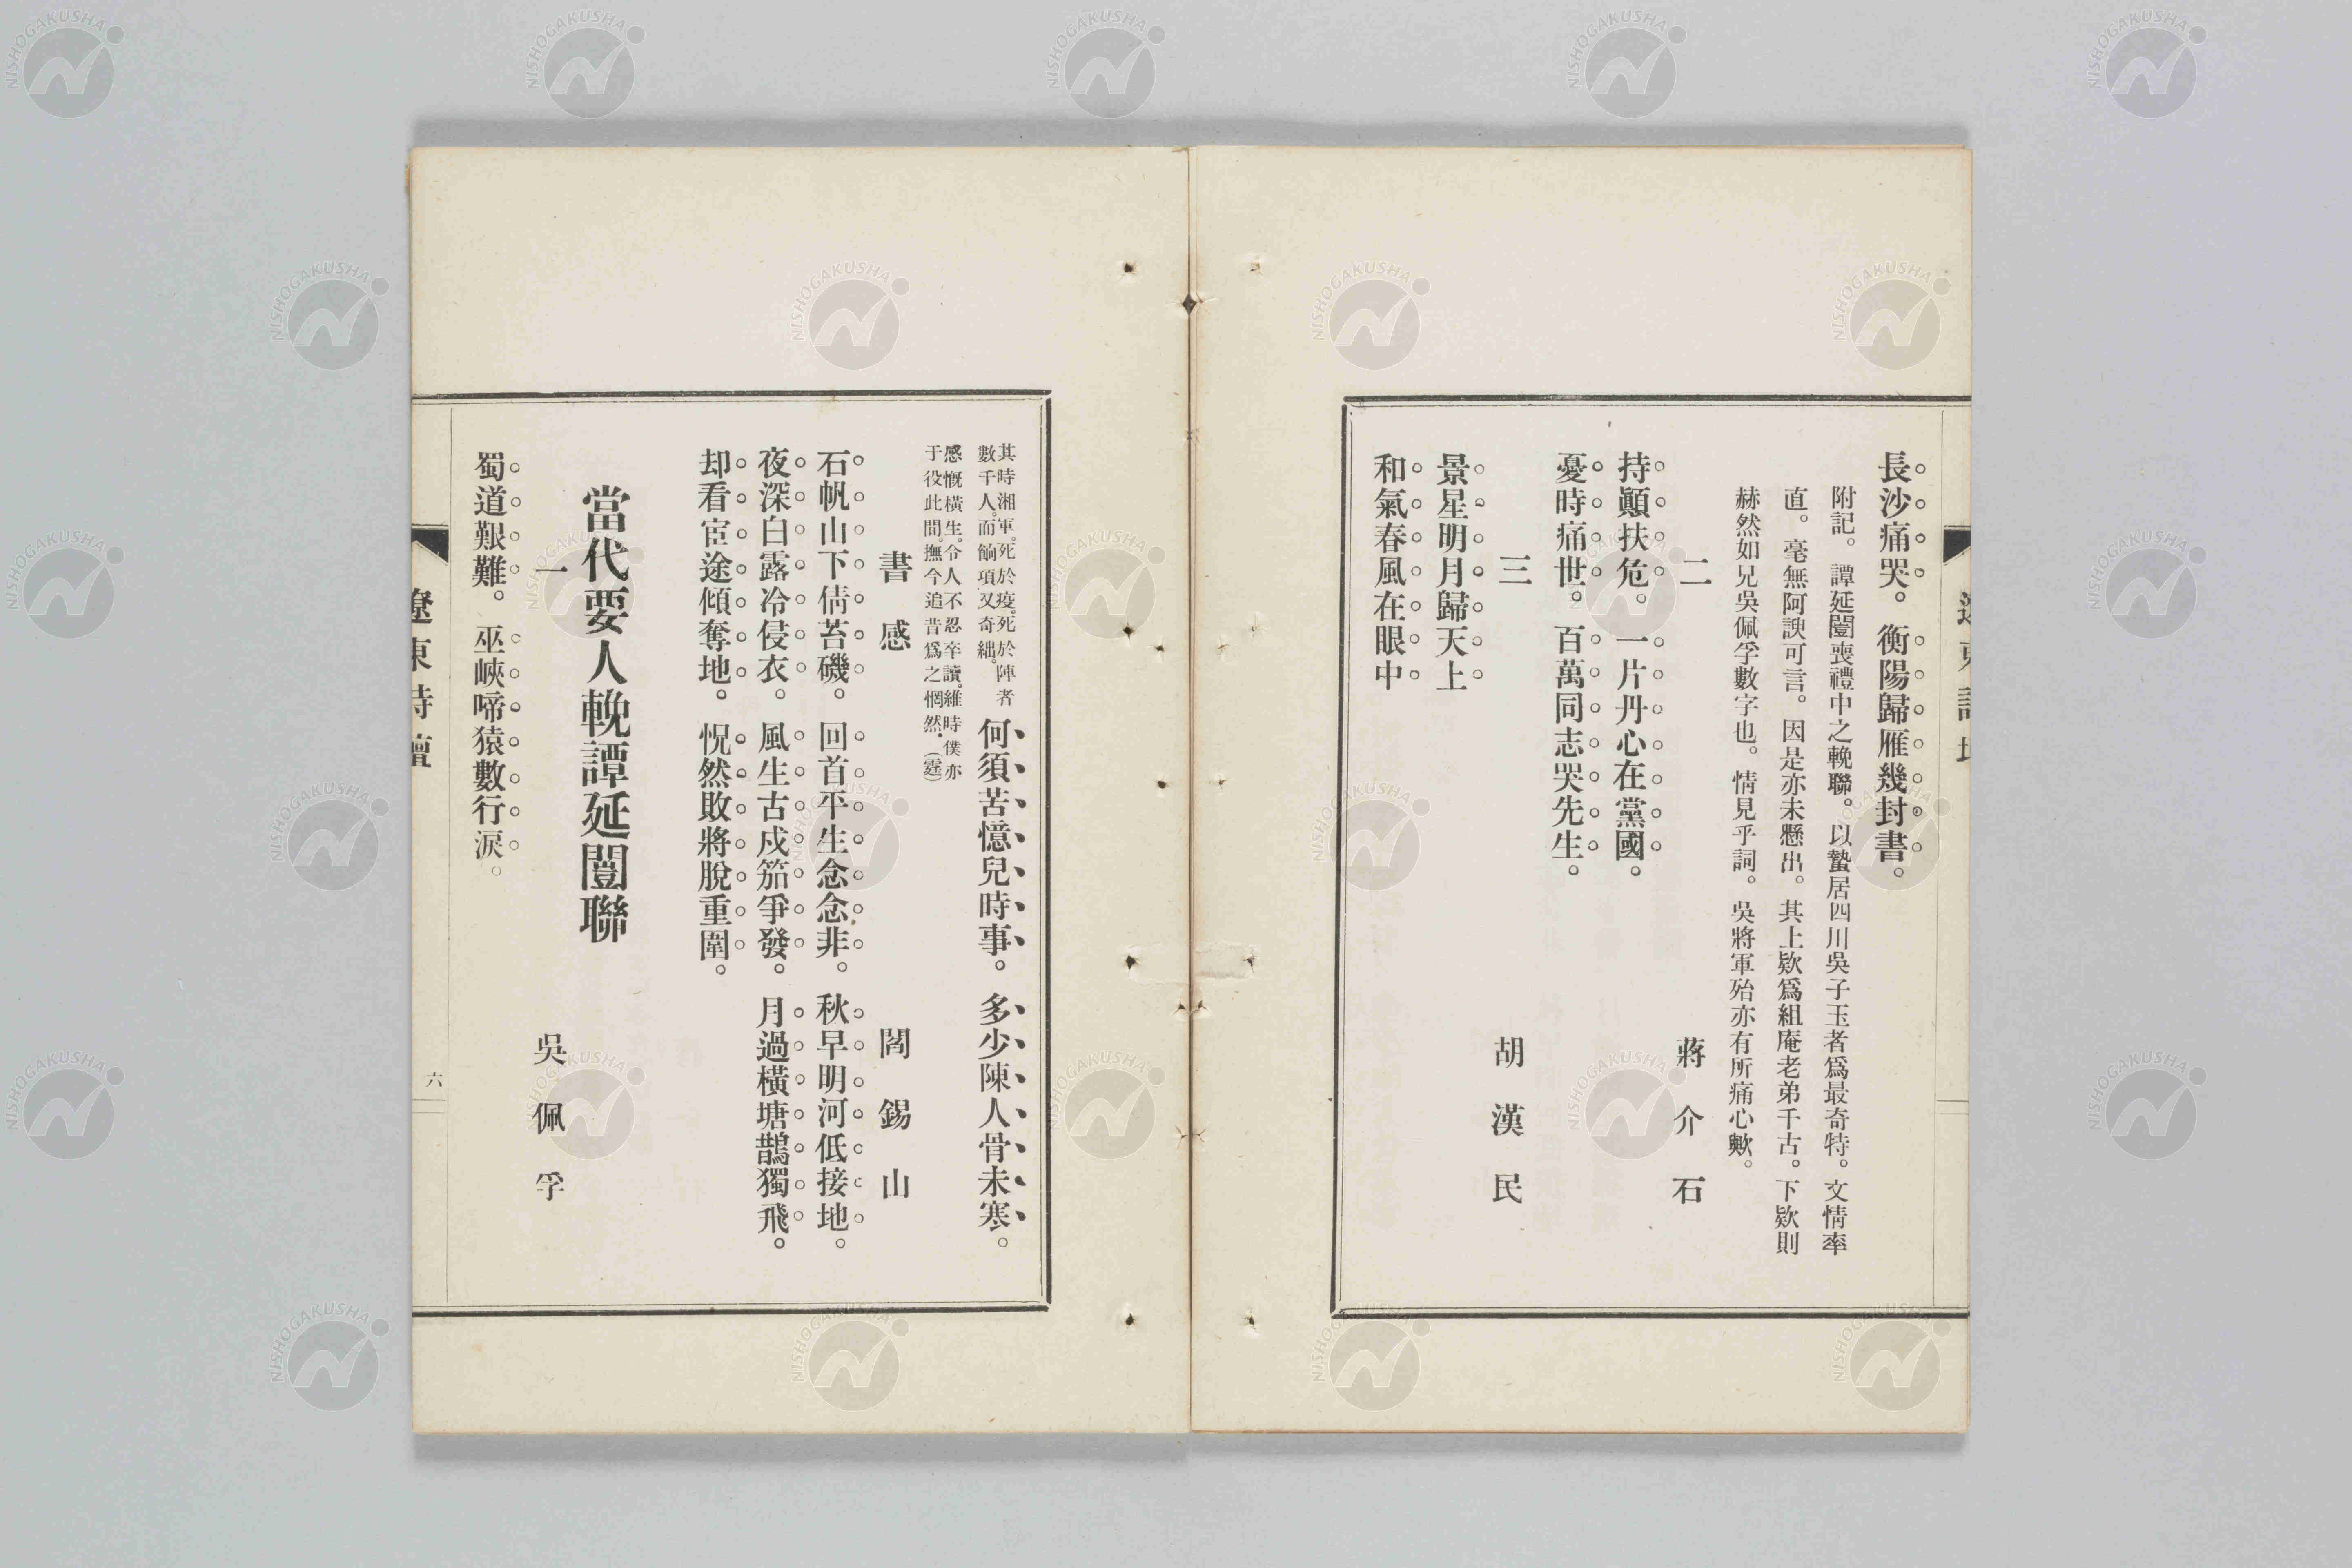 長沙痛哭。衡陽歸雁幾封書。
附記。譚延闓喪禮中之輓聯。以蟄居四川吳子玉者爲最奇特。文情率
直。毫無阿諛可言。因是亦未懸出。其上欵爲組庵老弟千古。下欵則
赫然如兄吳佩孚數字也。情見乎詞。吳將軍殆亦有所痛心歟。
二　蔣介石
持顚扶危。一片丹心在黨國。
憂時痛世。百萬同志哭先生。
三　胡漢民
景星明月歸天上
和氣春風在眼中
其時湘軍。死於疫。死於陣者
數千人。而餉項又奇絀。
何須苦憶兒時事。多少陳人骨未寒。
感慨橫生。令人不忍卒讀。維時僕亦
于役此間。撫今追昔爲之惘然。（霆）
書感　閻錫山
石帆山下倩苔磯。回首平生念念非。秋早明河低接地。
夜深白露冷侵衣。風生古戍笳爭發。月過橫塘鵲獨飛。
却看宦途傾奪地。怳然敗將脫重圍。
當代要人輓譚延闓聯
一　吳佩孚
蜀道艱難。巫峽啼猿數行淚。
遼東詩壇
六